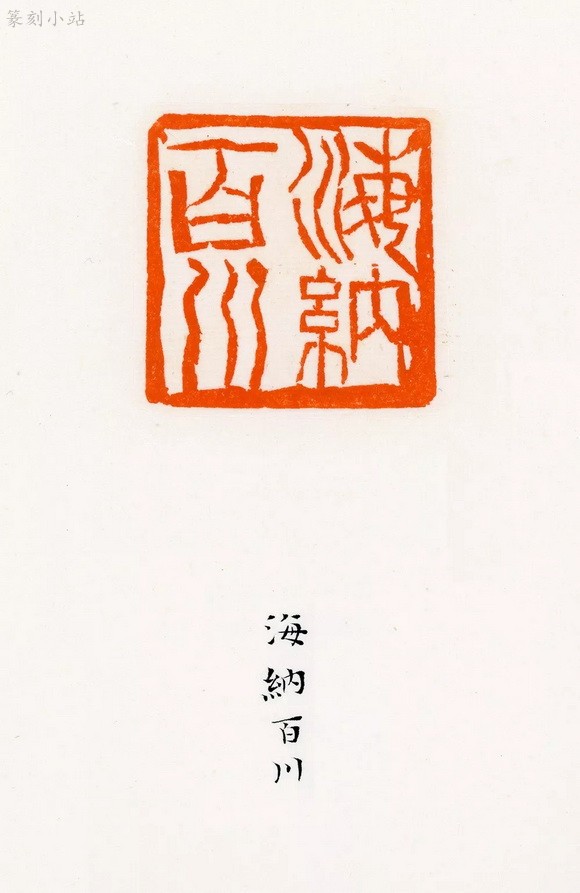 篆刻小站
海納
百川
海納百川